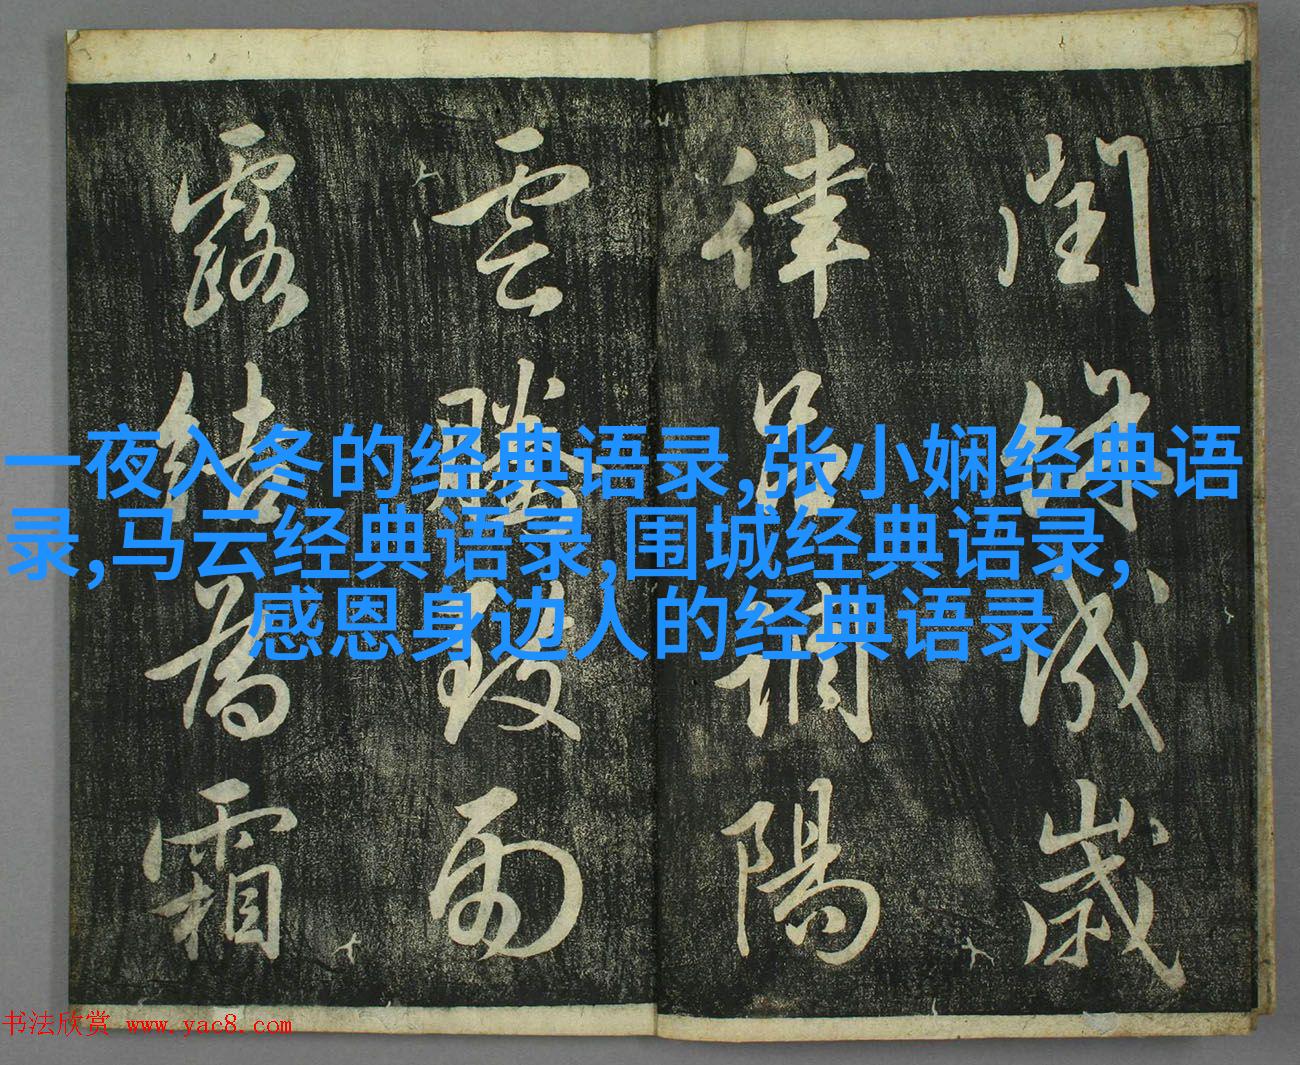 閏餘成歲
律呂調陽
雲騰致雨
露結為霜
一夜入冬的经典语录,张小娴经典语
录,马云经典语录,围城经典语录,
感恩身边人的经典语录
书法欣赏 www.yac8.com